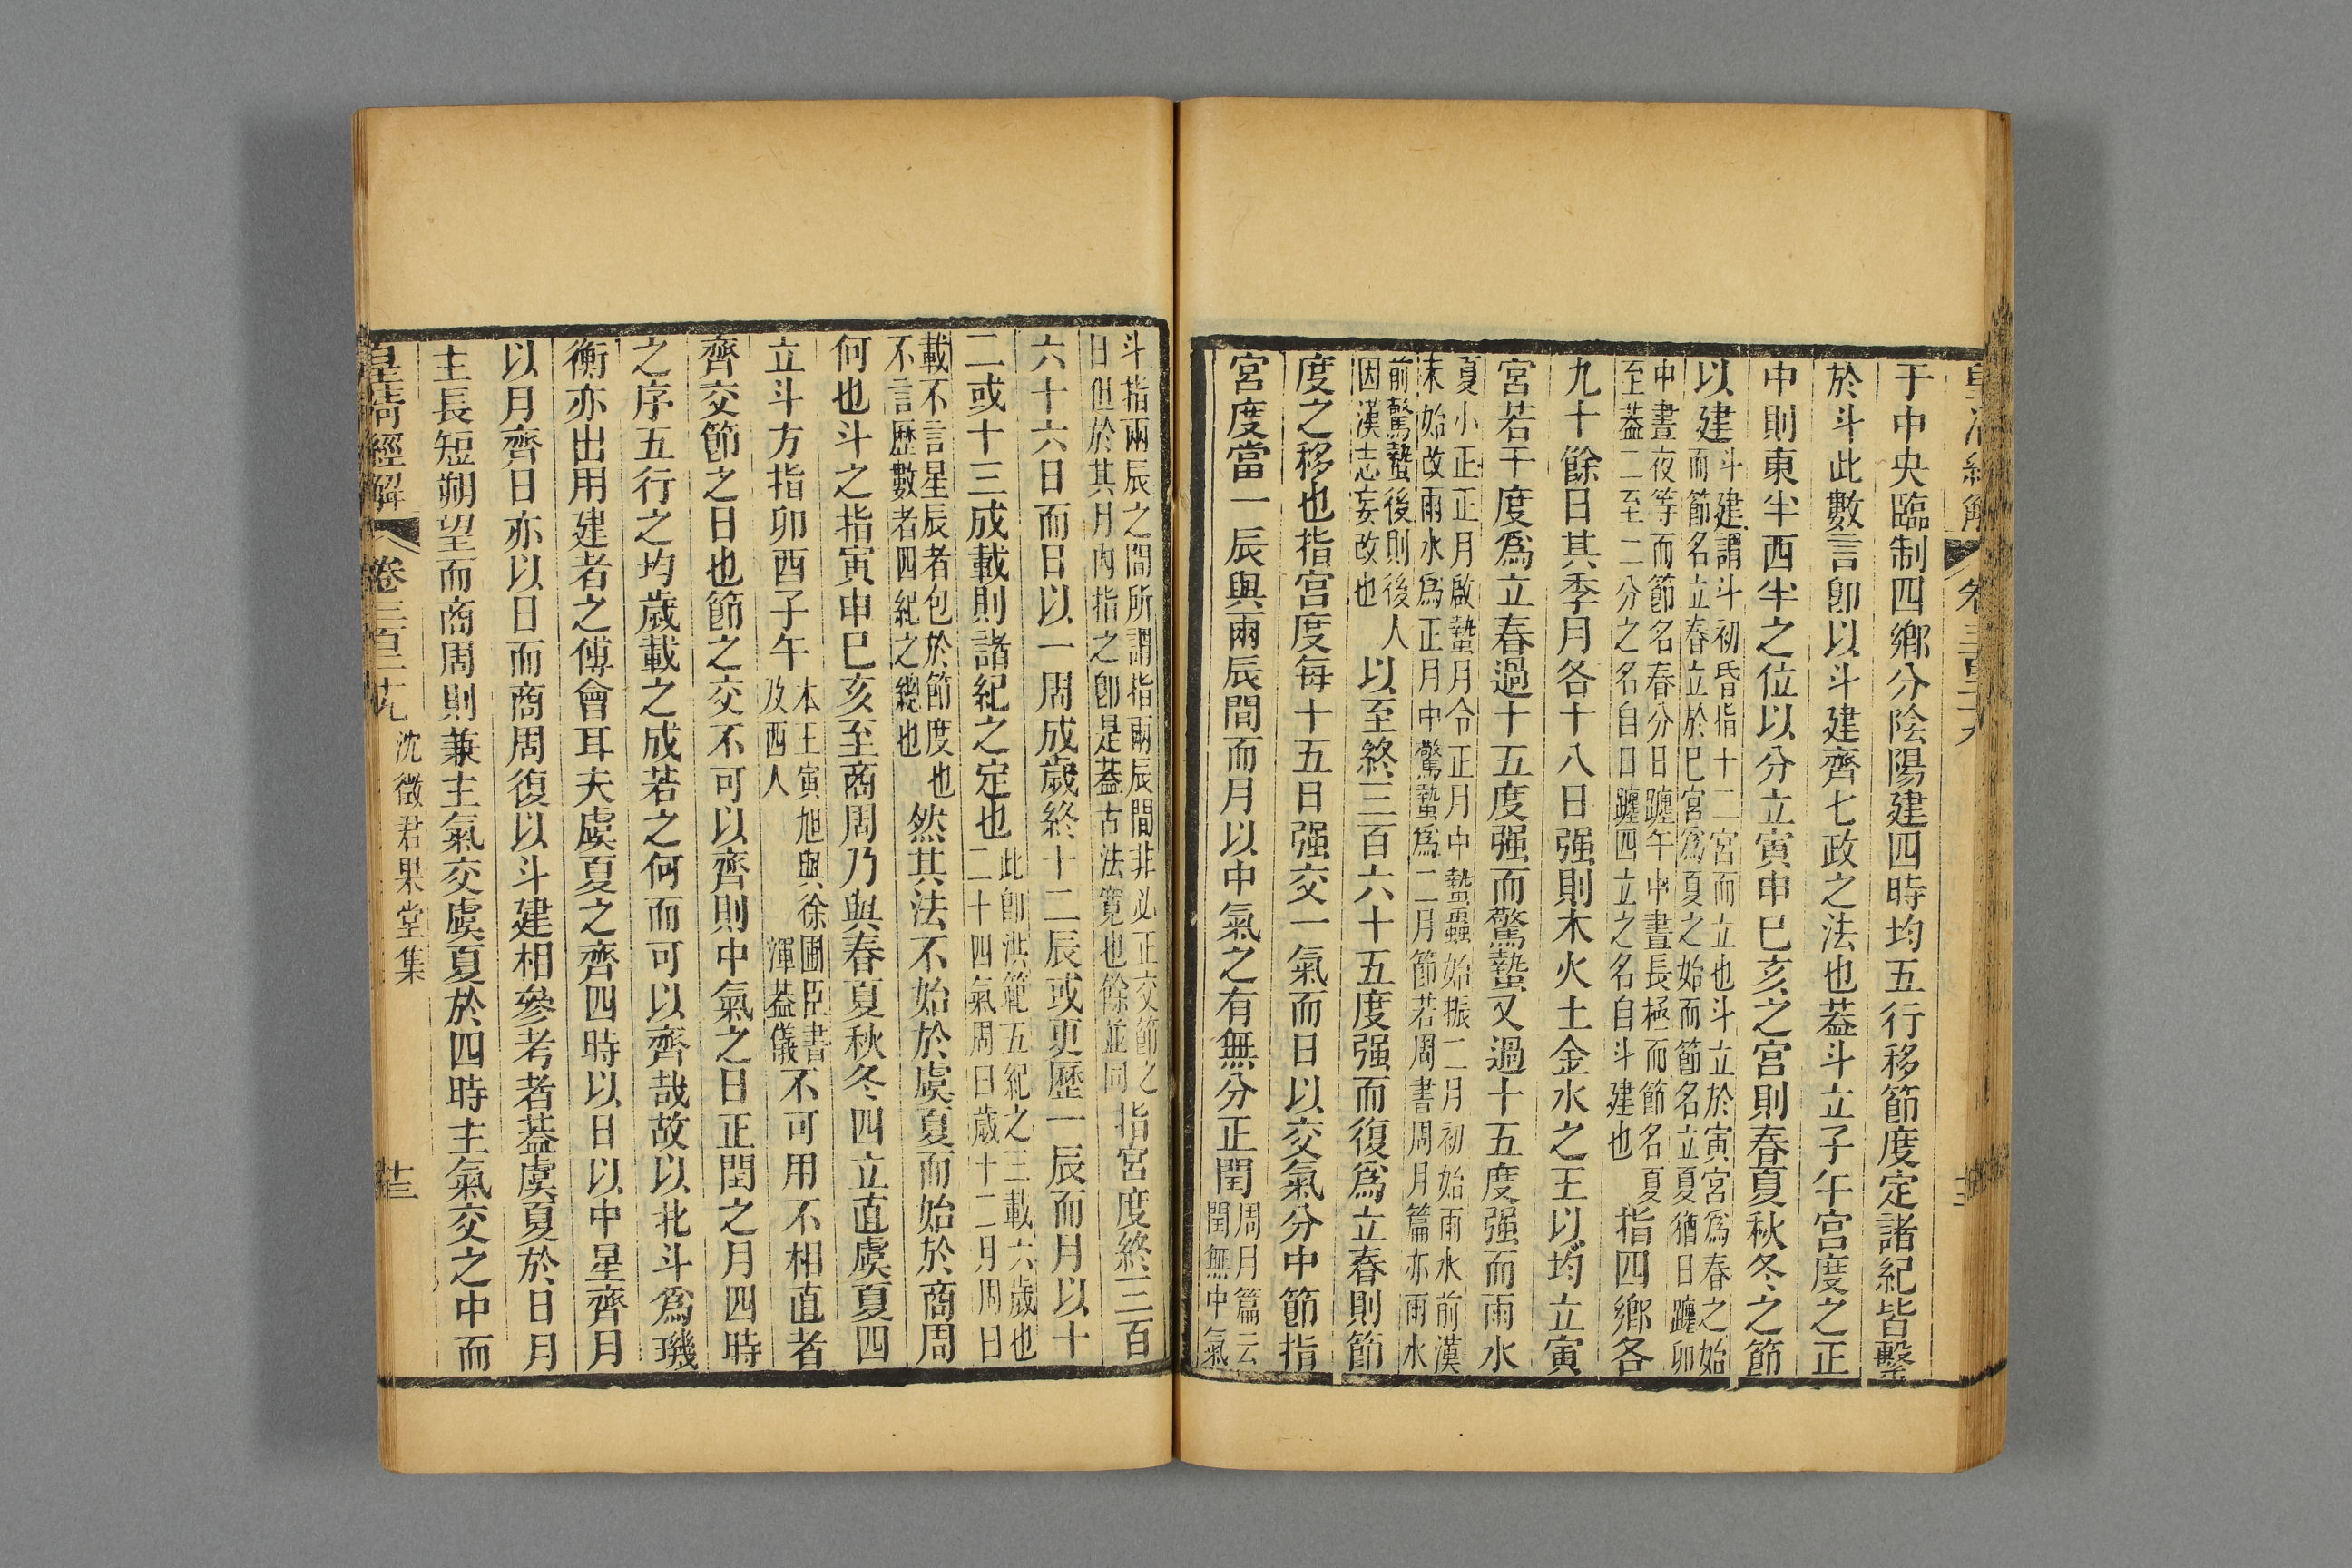 于中央臨制四鄉分陰陽建四時均五行移節度定諸紀皆繫
於斗此數言卽以斗建齊七政之法也葢斗立子午宮度之正
中則東半西半之位以分立寅申巳亥之宮則春夏秋冬之節
以建斗建謂斗初昏指十二宮而立也斗立於寅宮爲春之始
而節名立春立於巳宮爲夏之始而節名立夏猶日躔卯
中晝夜等而節名春分日躔午中晝長極而節名夏
至葢二至二分之名自日躔四立之名自斗建也指四鄉各
九十餘日其季月各十八日强則木火土金水之王以均立寅
宮若干度爲立春過十五度强而驚蟄又過十五度强而雨水
夏小正正月啟蟄月令正月中蟄蟲始振二月初始雨水前漢
末始改雨水爲正月中驚蟄爲二月節若周書周月篇亦雨水
前驚蟄後則後人
因漢志妄改也以至終三百六十五度强而復爲立春則節
度之移也指宮度每十五日强交一氣而日以交氣分中節指
宮度當一辰與兩辰間而月以中氣之有無分正閏周月篇云
閏無中氣
斗指兩辰之間所謂指兩辰間非必正交節之
日但於其月內指之卽是葢古法寬也餘並同指宮度終三百
六十六日而日以一周成歲終十二辰或更歷一辰而月以十
二或十三成載則諸紀之定也此卽洪範五紀之三載六歲也
二十四氣周日歲十二月周日
載不言星辰者包於節度也
不言歷數者四紀之總也然其法不始於虞夏而始於商周
何也斗之指寅申巳亥至商周乃與春夏秋冬四立直虞夏四
立斗方指卯酉子午本王寅旭與徐圃臣書
及西人渾葢儀不可用不相直者
齊交節之日也節之交不可以齊則中氣之日正閏之月四時
之序五行之均歲載之成若之何而可以齊哉故以北斗爲璣
衡亦出用建者之傅會耳夫虞夏之齊四時以日以中星齊月
以月齊日亦以日而商周復以斗建相參考者葢虞夏於日月
主長短朔望而商周則兼主氣交虞夏於四時主氣交之中而
皇清經解 卷三百二十九 沈徵君果堂集 十三